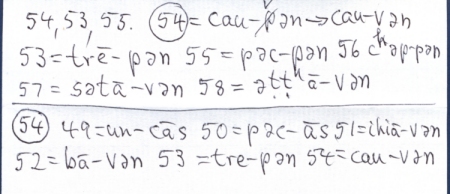 54, 53, 55. (54) = cau-pən → cau-vən
53 = trē-pən 55 = pəc-pən 56 cʰəp-pən
57 = sətā-vən 58 = əṭṭʰā-vən
(54) 49 = un-cās 50 = pəc-ās 51 = ihiā-vən
52 = bā-vən 53 = tre-pən 54 = cau-vən